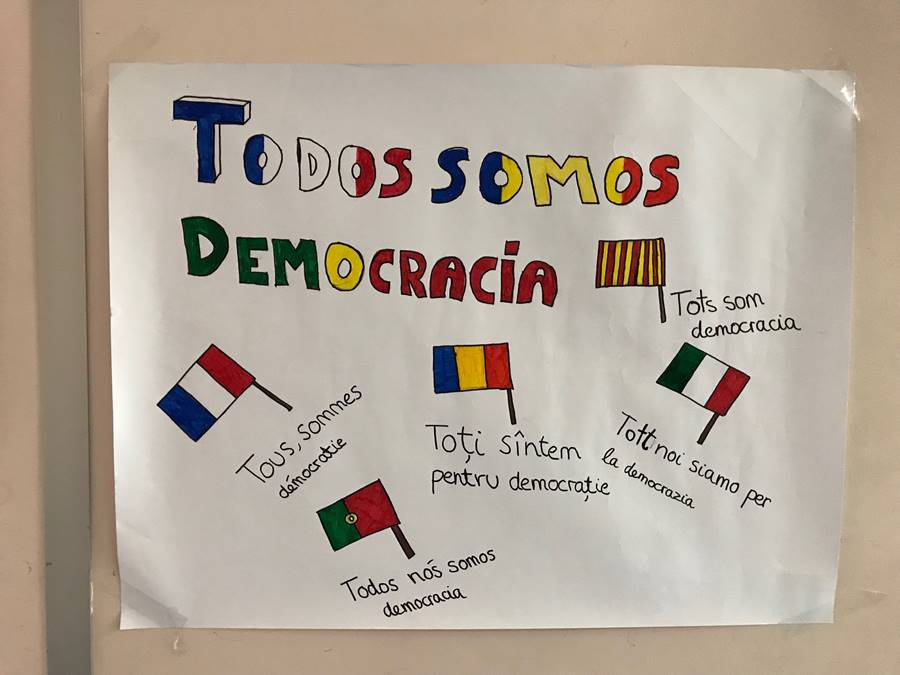 TODOS SOMOS
DEMOCRACIA
Tots som
democracia
Tous, sommes
démocratie
Toți sîntem
pentru democrație
Totti noi siamo per
la democrazia
Todos nós somos
democracia